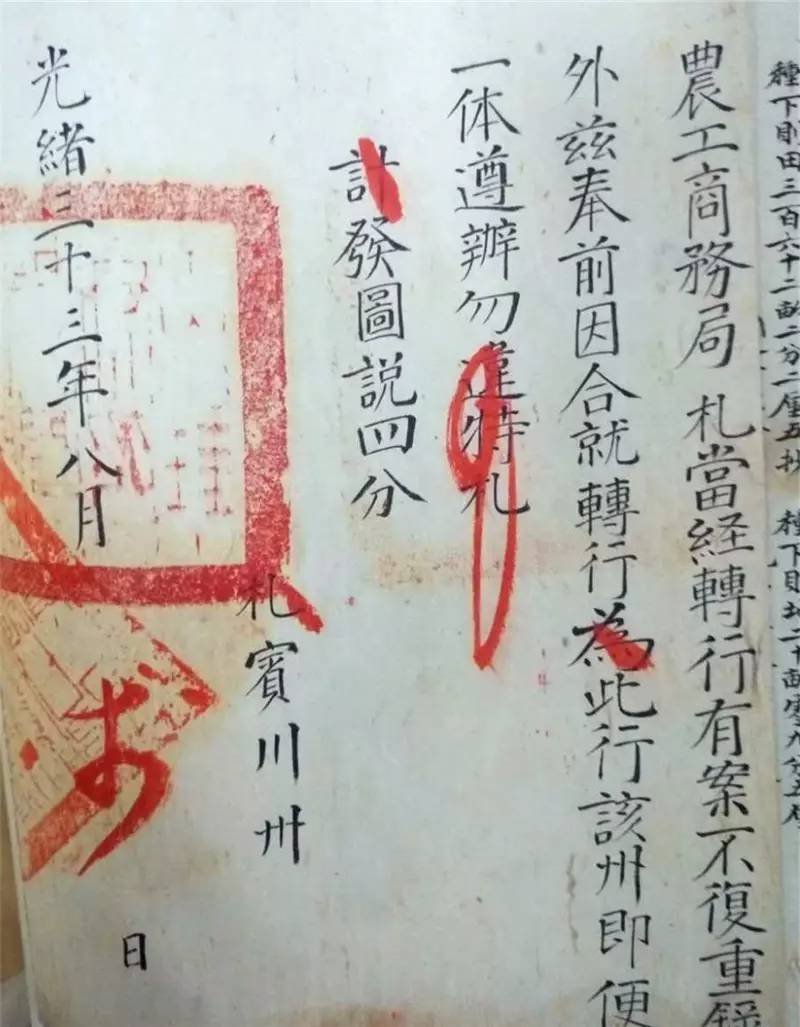 種下則田三百六十二畝二分二厘五抄
農工商務局 札當経轉行有案不復重錄
外茲奉前因合就轉行為此行該州即便
一体遵辦勿違特札
計發圖説四分
札賓川州
光緒三十三年八月
日